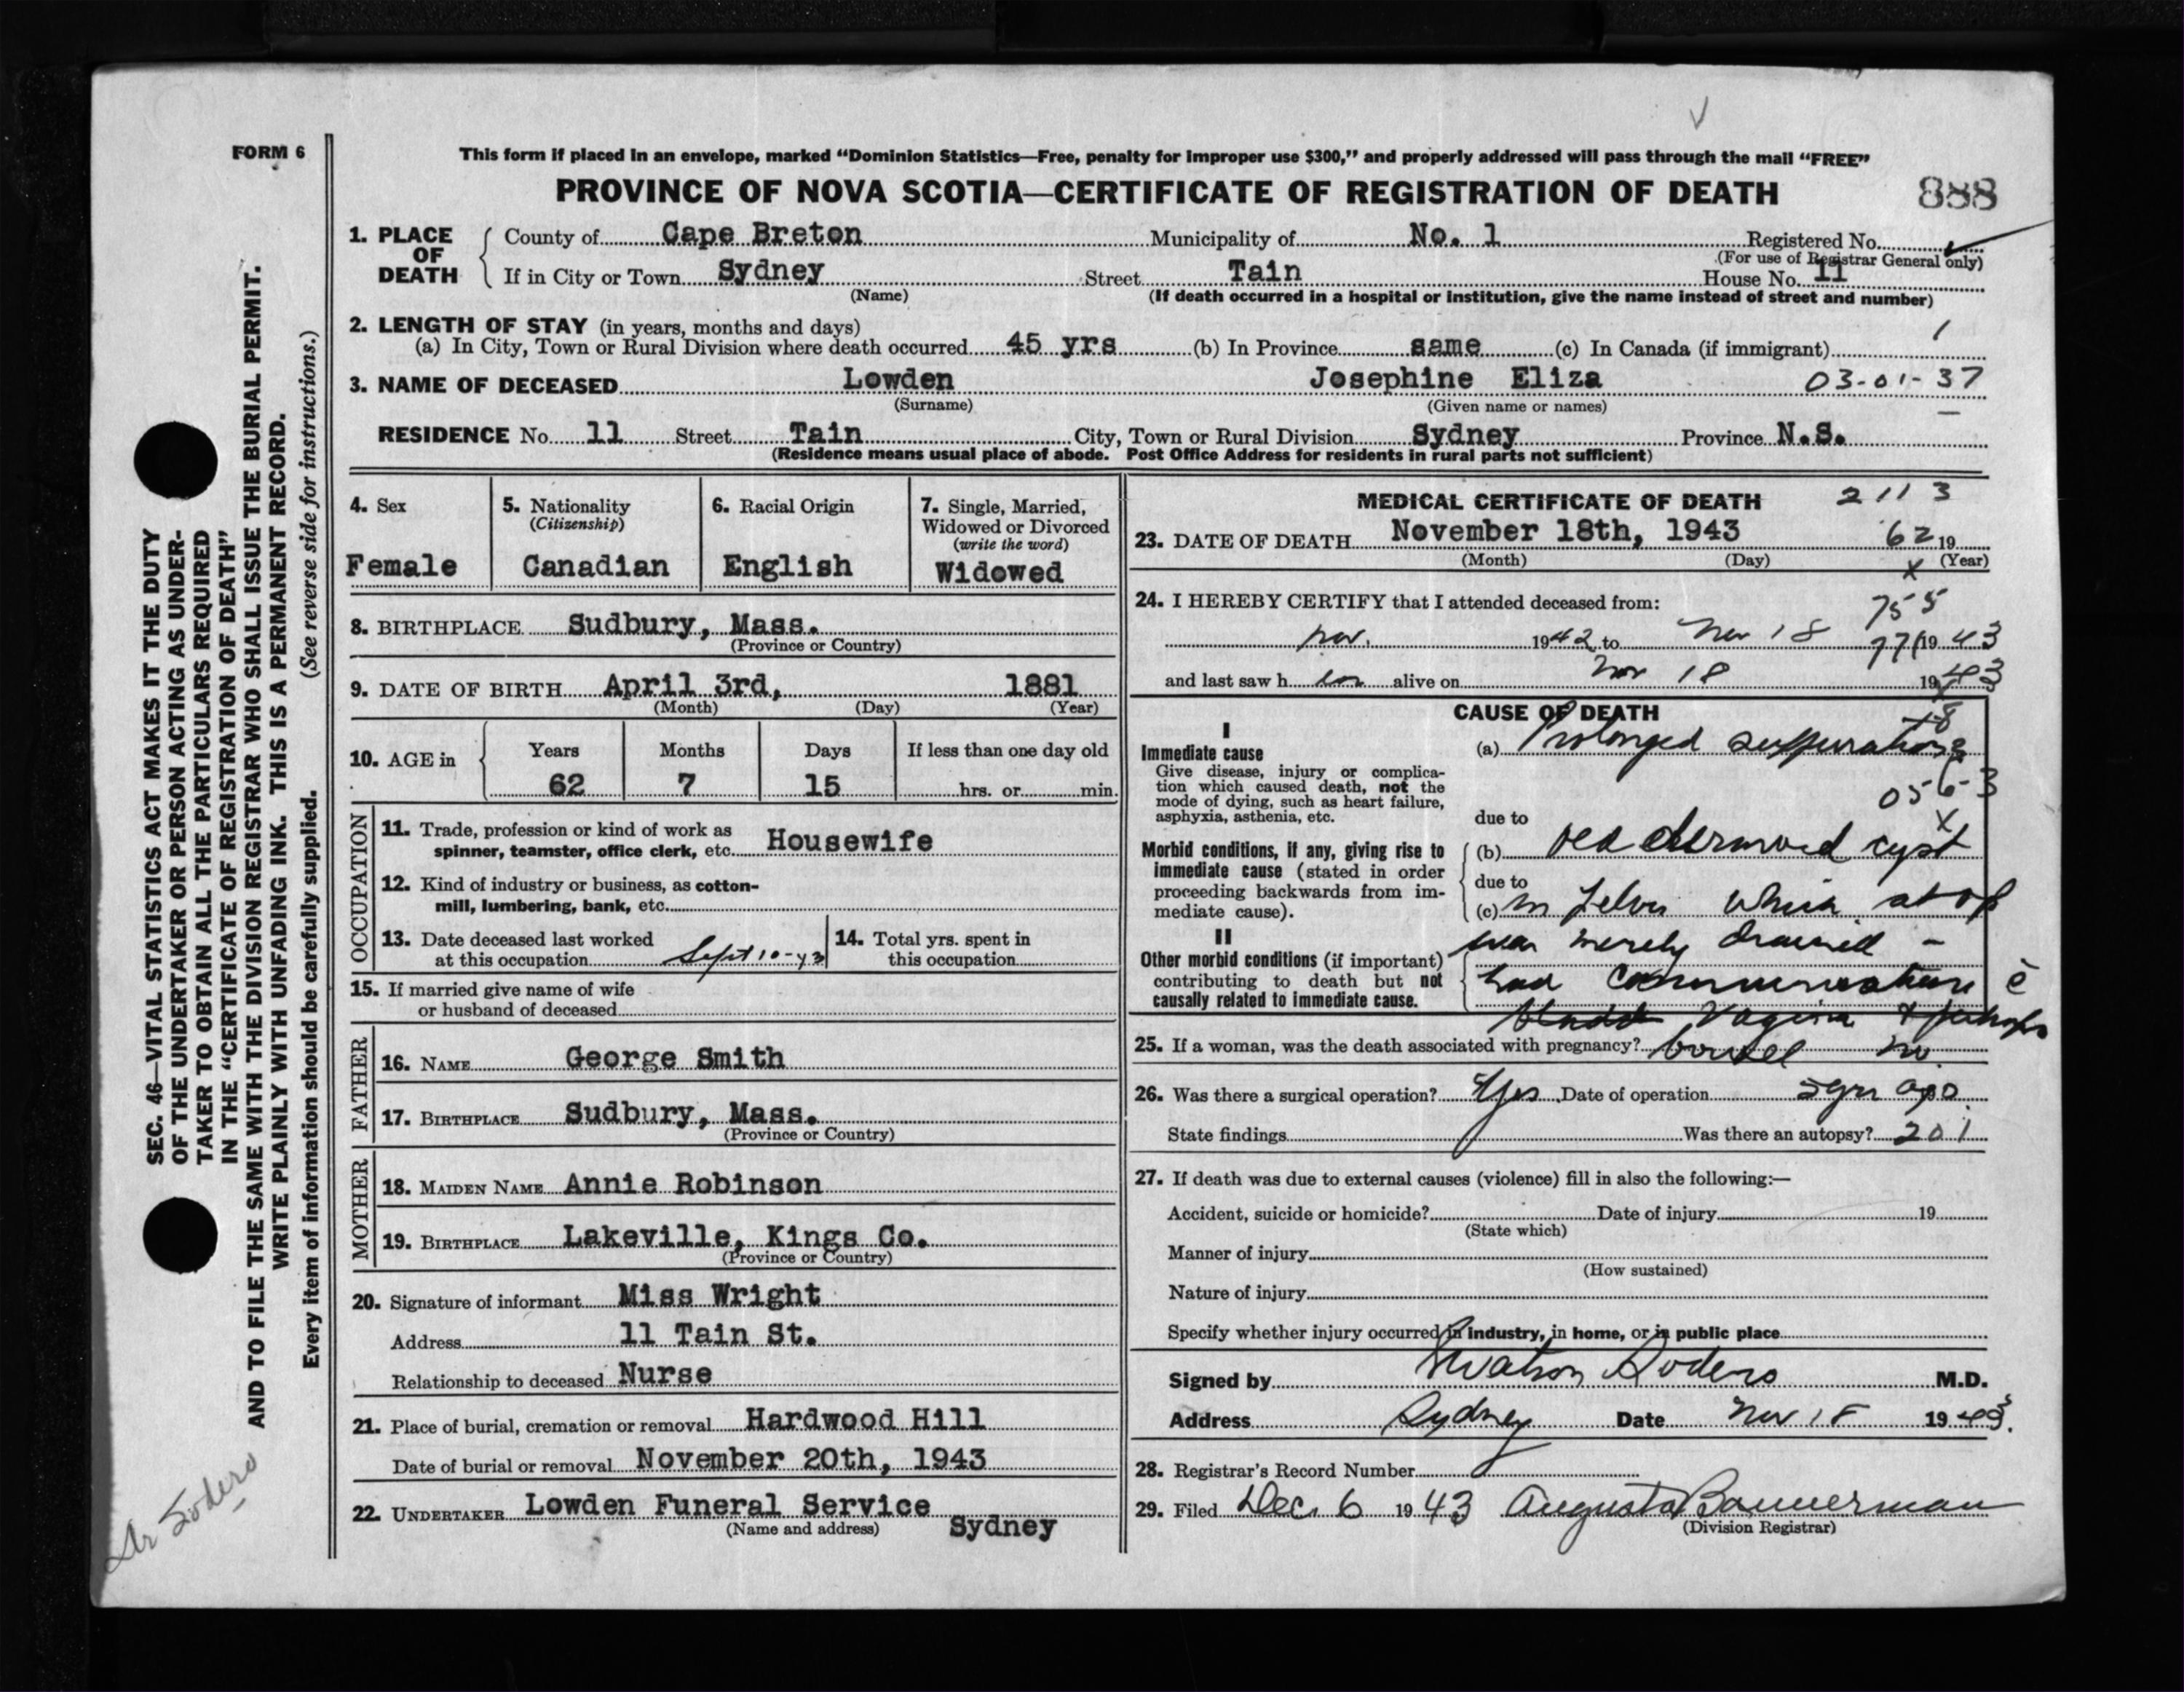 FORM 6
This form if placed in an envelope, marked “Dominion Statistics—Free, penalty for improper use $300,” and properly addressed will pass through the mail “FREE”
PROVINCE OF NOVA SCOTIA—CERTIFICATE OF REGISTRATION OF DEATH 888
1. PLACE OF DEATH County of Cape Breton Municipality of No. 1 Registered No.
(For use of Registrar General only)
If in City or Town Sydney Street Tain House No. 11
(Name) (If death occurred in a hospital or institution, give the name instead of street and number)
2. LENGTH OF STAY (in years, months and days) 1
(a) In City, Town or Rural Division where death occurred 45 yrs (b) In Province same (c) In Canada (if immigrant)
3. NAME OF DECEASED Lowden Josephine Eliza 03-01-37
(Surname) (Given name or names)
RESIDENCE No. 11 Street Tain City, Town or Rural Division Sydney Province N.S.
(Residence means usual place of abode. Post Office Address for residents in rural parts not sufficient)
4. Sex
Female
5. Nationality
(Citizenship)
Canadian
6. Racial Origin
English
7. Single, Married,
Widowed or Divorced
(write the word)
Widowed
8. BIRTHPLACE Sudbury, Mass.
(Province or Country)
9. DATE OF BIRTH April 3rd, 1881
(Month) (Day) (Year)
10. AGE in Years Months Days If less than one day old
62 7 15 hrs. or min.
OCCUPATION
11. Trade, profession or kind of work as
spinner, teamster, office clerk, etc. Housewife
12. Kind of industry or business, as cotton-
mill, lumbering, bank, etc.
13. Date deceased last worked
at this occupation Sept 10-43
14. Total yrs. spent in
this occupation
15. If married give name of wife
or husband of deceased
FATHER
16. NAME George Smith
17. BIRTHPLACE Sudbury, Mass.
(Province or Country)
MOTHER
18. MAIDEN NAME Annie Robinson
19. BIRTHPLACE Lakeville, Kings Co.
(Province or Country)
20. Signature of informant Miss Wright
Address 11 Tain St.
Relationship to deceased Nurse
21. Place of burial, cremation or removal Hardwood Hill
Date of burial or removal November 20th, 1943
22. UNDERTAKER Lowden Funeral Service
(Name and address) Sydney
MEDICAL CERTIFICATE OF DEATH 2113
23. DATE OF DEATH November 18th, 1943 62 19
(Month) (Day) x (Year)
24. I HEREBY CERTIFY that I attended deceased from: 755
Nov. 1942 to Nov 18 1943
and last saw h er alive on Nov 18 1943
CAUSE OF DEATH
I
Immediate cause
Give disease, injury or complica-
tion which caused death, not the
mode of dying, such as heart failure,
asphyxia, asthenia, etc.
(a) Prolonged suppuration
056-3
x
due to
Morbid conditions, if any, giving rise to
immediate cause (stated in order
proceeding backwards from im-
mediate cause).
(b) old dermoid cyst
due to
(c) in Pelvis which at op
II
Other morbid conditions (if important)
contributing to death but not
causally related to immediate cause.
was merely drained -
had communication c̄
Vagina & perhaps
25. If a woman, was the death associated with pregnancy? bowel no
26. Was there a surgical operation? Yes Date of operation 5 yrs ago
State findings Was there an autopsy? 201
27. If death was due to external causes (violence) fill in also the following:—
Accident, suicide or homicide? Date of injury 19
(State which)
Manner of injury
(How sustained)
Nature of injury
Specify whether injury occurred in industry, in home, or in public place
Signed by Watson Sodero M.D.
Address Sydney Date Nov 18 1943.
28. Registrar's Record Number
29. Filed Dec. 6 1943 Augusta Bannerman
(Division Registrar)
SEC. 46—VITAL STATISTICS ACT MAKES IT THE DUTY
OF THE UNDERTAKER OR PERSON ACTING AS UNDER-
TAKER TO OBTAIN ALL THE PARTICULARS REQUIRED
IN THE “CERTIFICATE OF REGISTRATION OF DEATH”
AND TO FILE THE SAME WITH THE DIVISION REGISTRAR WHO SHALL ISSUE THE BURIAL PERMIT.
WRITE PLAINLY WITH UNFADING INK. THIS IS A PERMANENT RECORD.
Every item of information should be carefully supplied. (See reverse side for instructions.)
Dr Sodero